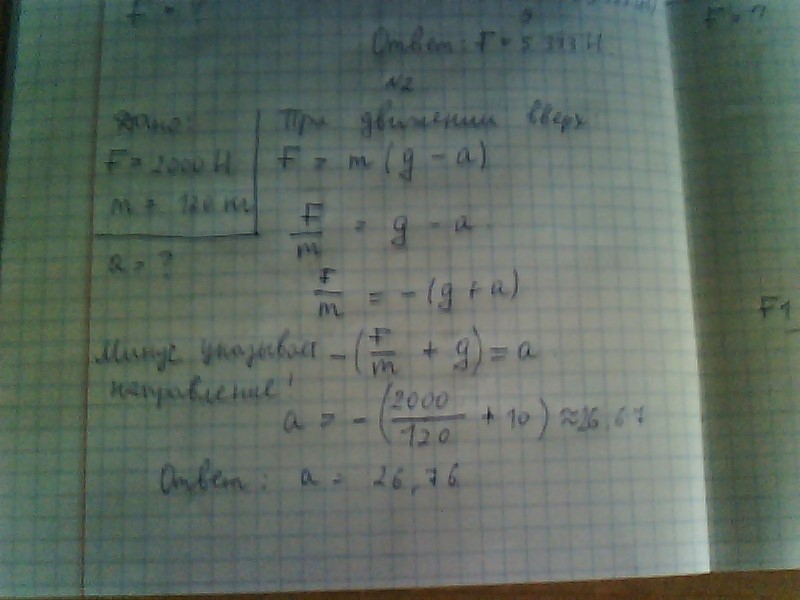 F = ?
Ответ: F = 5 393 Н.
F = ?
№2
Дано:
F = 2000 Н
m = 120 m
a = ?
При движении вверх
F = m (g - a)
F/m = g - a
F/m = - (g + a)
Минус указывает
направление!
- (F/m + g) = a
a = - (2000/120 + 10) ≈ 26,67
Ответ: a = 26,76
F1